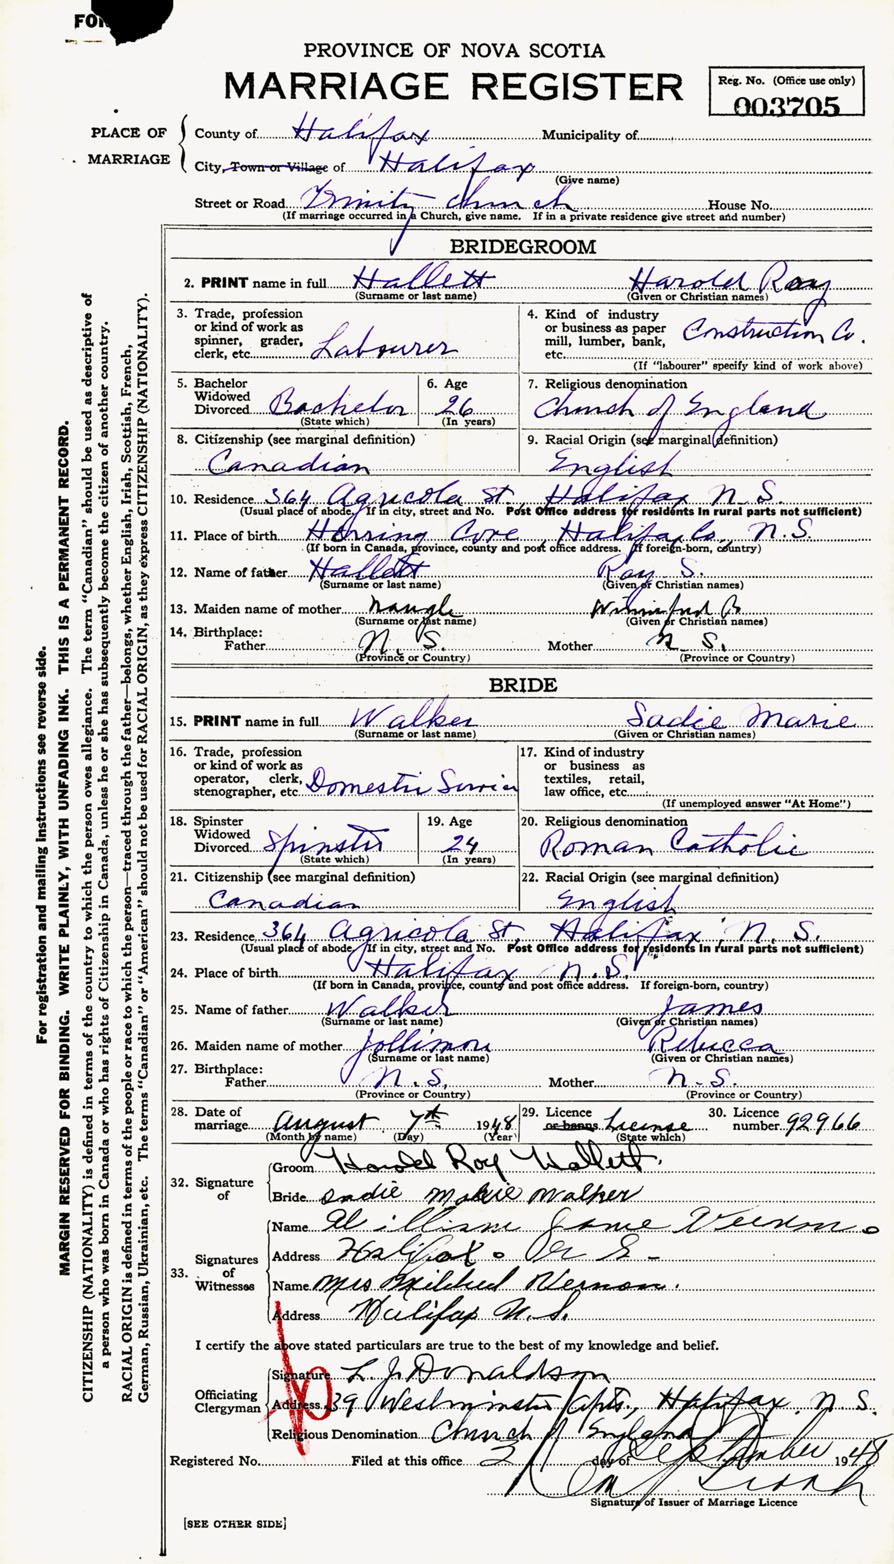 FOR
PROVINCE OF NOVA SCOTIA
MARRIAGE REGISTER
Reg. No. (Office use only)
003705
PLACE OF MARRIAGE
County of Halifax Municipality of
City, Town or Village of Halifax
(Give name)
Street or Road Trinity Church House No.
(If marriage occurred in a Church, give name. If in a private residence give street and number)
BRIDEGROOM
2. PRINT name in full Hallett Harold Roy
(Surname or last name) (Given or Christian names)
3. Trade, profession or kind of work as spinner, grader, clerk, etc. Labourer
4. Kind of industry or business as paper mill, lumber, bank, etc. Construction Co.
(If "labourer" specify kind of work above)
5. Bachelor Widowed Divorced Bachelor
(State which)
6. Age 26
(In years)
7. Religious denomination
Church of England
8. Citizenship (see marginal definition)
Canadian
9. Racial Origin (see marginal definition)
English
10. Residence 364 Agricola St, Halifax N.S.
(Usual place of abode. If in city, street and No. Post Office address for residents in rural parts not sufficient)
11. Place of birth Herring Cove, Halifax Co., N.S.
(If born in Canada, province, county and post office address. If foreign-born, country)
12. Name of father Hallett Roy S.
(Surname or last name) (Given or Christian names)
13. Maiden name of mother Naugle Winnifred B
(Surname or last name) (Given or Christian names)
14. Birthplace:
Father N.S. Mother N.S.
(Province or Country) (Province or Country)
BRIDE
15. PRINT name in full Walker Sadie Marie
(Surname or last name) (Given or Christian names)
16. Trade, profession or kind of work as operator, clerk, stenographer, etc. Domestic Service
17. Kind of industry or business as textiles, retail, law office, etc.
(If unemployed answer "At Home")
18. Spinster Widowed Divorced Spinster
(State which)
19. Age 24
(In years)
20. Religious denomination
Roman Catholic
21. Citizenship (see marginal definition)
Canadian
22. Racial Origin (see marginal definition)
English
23. Residence 364 Agricola St, Halifax, N.S.
(Usual place of abode. If in city, street and No. Post Office address for residents in rural parts not sufficient)
24. Place of birth Halifax N.S.
(If born in Canada, province, county and post office address. If foreign-born, country)
25. Name of father Walker James
(Surname or last name) (Given or Christian names)
26. Maiden name of mother Jollimore Rebecca
(Surname or last name) (Given or Christian names)
27. Birthplace:
Father N.S. Mother N.S.
(Province or Country) (Province or Country)
28. Date of marriage August 7th 1948
(Month by name) (Day) (Year)
29. Licence or banns License
(State which)
30. Licence number 92966
32. Signature of
Groom Harold Roy Hallett.
Bride Sadie Marie Walker
33. Signatures of Witnesses
Name William Vernon
Address Halifax. N S
Name Mrs Mildred Vernon.
Address Halifax N.S.
I certify the above stated particulars are true to the best of my knowledge and belief.
Officiating Clergyman
Signature L. J. Donaldson
Address 39 Westminster Apts., Halifax, N.S.
Religious Denomination Church of England
Registered No. Filed at this office 2 day of September 1948
Signature of Issuer of Marriage Licence
[SEE OTHER SIDE]
For registration and mailing instructions see reverse side.
MARGIN RESERVED FOR BINDING. WRITE PLAINLY, WITH UNFADING INK. THIS IS A PERMANENT RECORD.
CITIZENSHIP (NATIONALITY) is defined in terms of the country to which the person owes allegiance. The term "Canadian" should be used as descriptive of
a person who was born in Canada or who has rights of Citizenship in Canada, unless he or she has subsequently become the citizen of another country.
RACIAL ORIGIN is defined in terms of the people or race to which the person—traced through the father—belongs, whether English, Irish, Scottish, French,
German, Russian, Ukrainian, etc. The terms "Canadian" or "American" should not be used for RACIAL ORIGIN, as they express CITIZENSHIP (NATIONALITY).